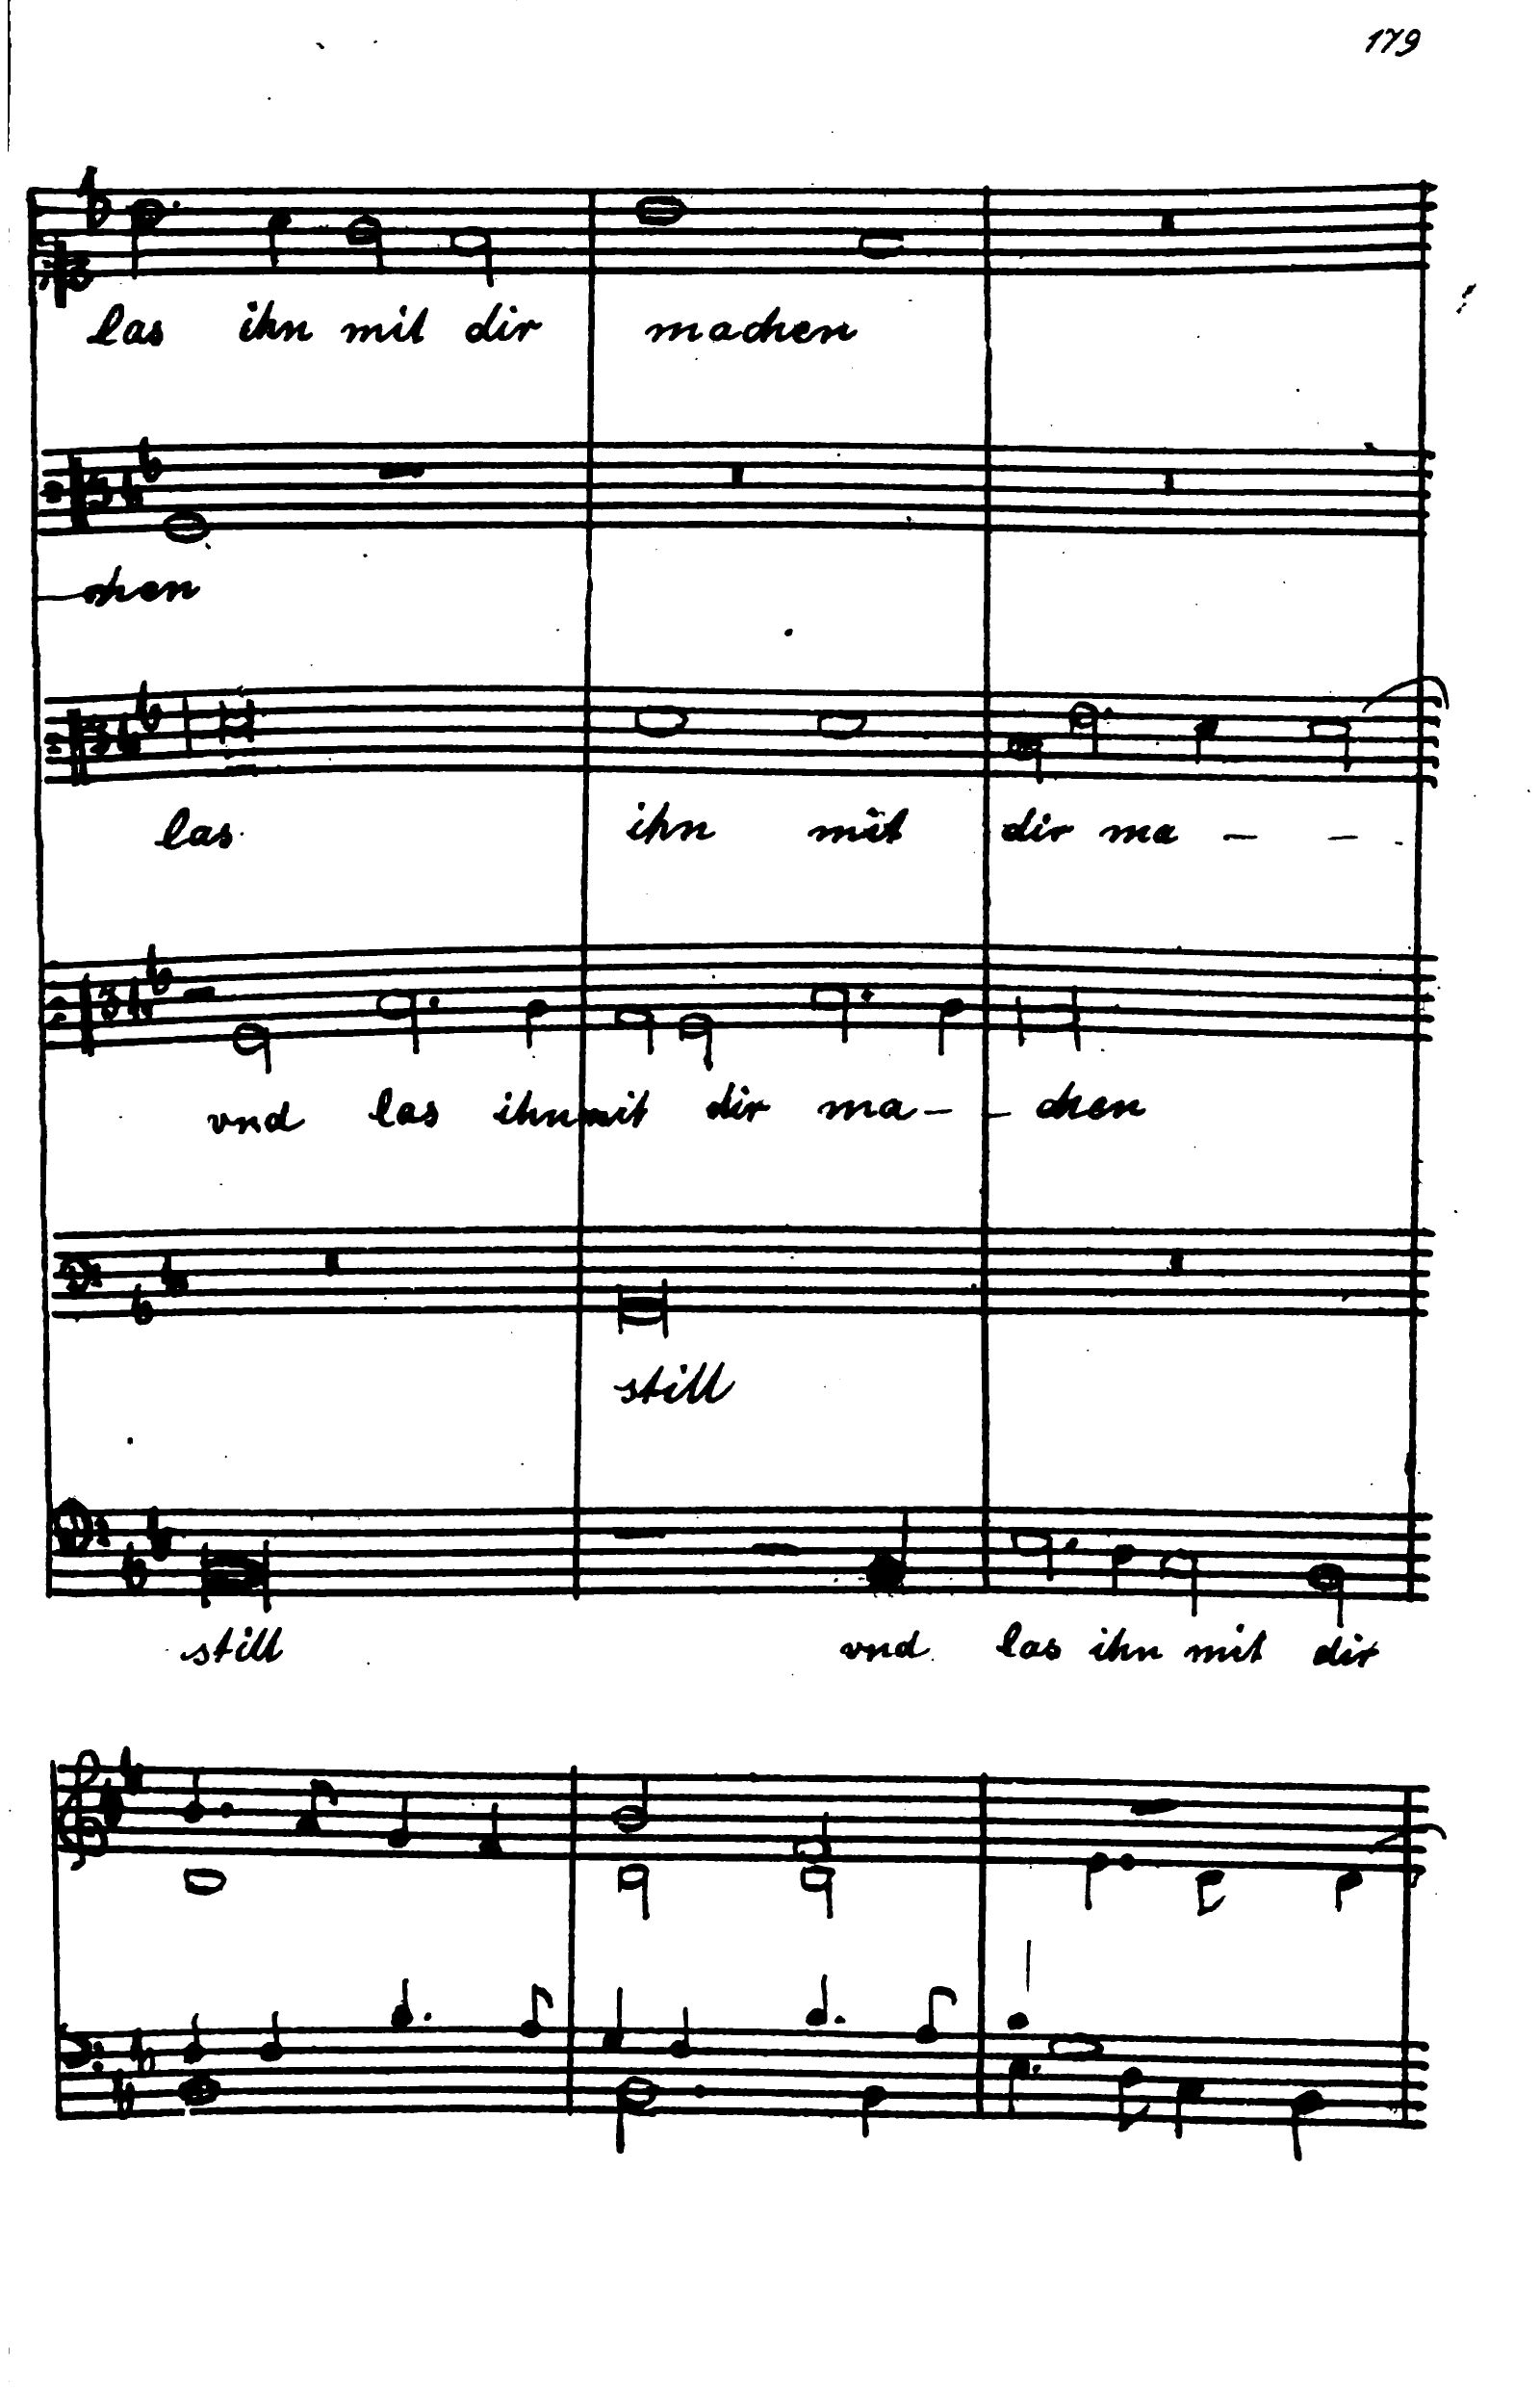 179
las ihn mit dir machen
chen
las ihn mit dir ma - - -
vnd las ihn mit dir ma - - chen
still
still vnd las ihn mit dir